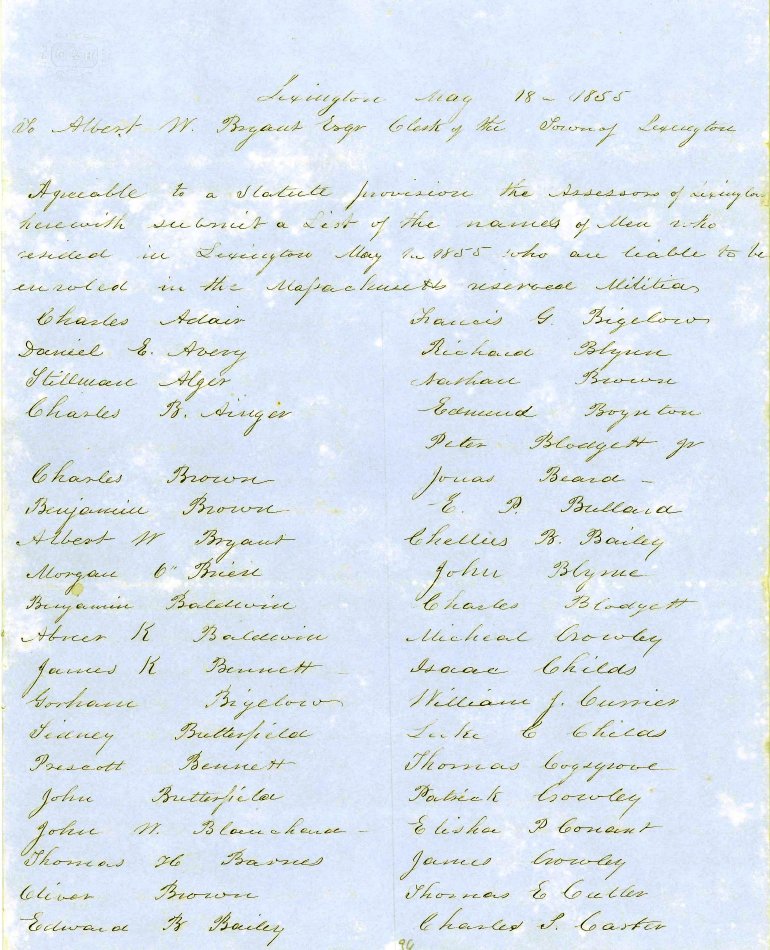 Lexington May 18 - 1855
To Albert W. Bryant Esqr Clerk of the Town of Lexington
Agreeable to a Statute provision the Assessors of Lexington
herewith submit a List of the names of Men who
resided in Lexington May 1st 1855 who are liable to be
enroled in the Massachusetts reserved Militia
Charles Adair
Daniel E. Avery
Stillman Alger
Charles B. Ainger
Charles Brown
Benjamin Brown
Albert W Bryant
Morgan O" Brien
Benjamin Baldwin
Abner K Baldwin
James K Bennett
Gorham Bigelow
Sidney Butterfield
Prescott Bennett
John Butterfield
John W. Blanchard -
Thomas H Barnes
Oliver Brown
Edward B Bailey
Francis G. Bigelow
Richard Blynn
Nathan Brown
Edmund Boynton
Peter Blodgett jr
Jonas Beard -
E. P. Bullard
Chellies B. Bailey
John Blyme
Charles Blodgett
Micheal Crowley
Isaac Childs
William J. Currier
Luke C Childs
Thomas Cogsgrove
Patrick Crowley
Elisha P Conant
James Crowley
Thomas E Cutler
Charles S. Carter